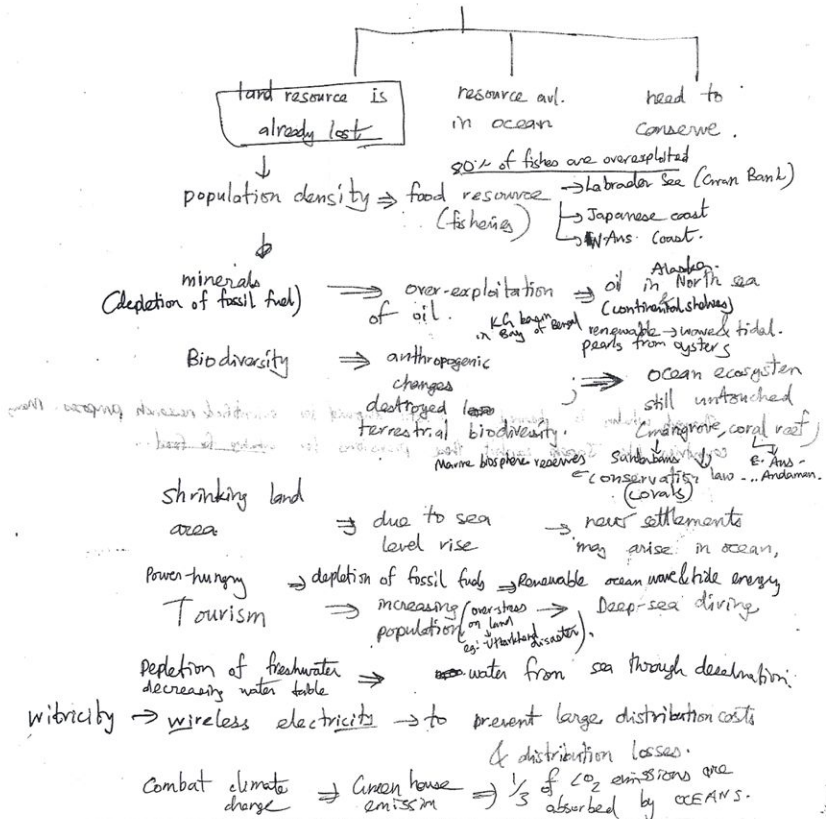 land resource is
already lost
resource avl.
in ocean
need to
conserve.
80% of fishes are overexploited
population density ⇒ food resource
(fisheries)
→ Labrador Sea (Gran Bank)
→ Japanese coast
→ W. Aus. Coast.
minerals
(depletion of fossil fuel)
⇒ over-exploitation
of oil.
⇒ oil in North sea
Alaska.
(continental shelves)
KG basin
in Bay of Bengal
renewable → wave & tidal.
pearls from oysters
Biodiversity ⇒ anthropogenic
changes
destroyed
terrestrial biodiversity.
; ⇒ ocean ecosystem
still untouched
(mangrove, coral reef)
Marine biosphere reserves
Sundarbans
E. Aus -
... Andaman.
conservation law
(corals)
shrinking land
area ⇒ due to sea
level rise
→ newer settlements
may arise in ocean,
Power-hungry ⇒ depletion of fossil fuels ⇒ Renewable ocean wave & tide energy
Tourism ⇒ increasing
population
(over-stress
on land
eg: Uttarkhand
disaster).
→ Deep-sea diving
Depletion of freshwater
decreasing water table ⇒ water from sea through desalination.
witricity → wireless electricity → to prevent large distribution costs
& distribution losses.
Combat climate
change ⇒ Green house
emission ⇒ 1/3 of CO2 emissions are
absorbed by OCEANS.